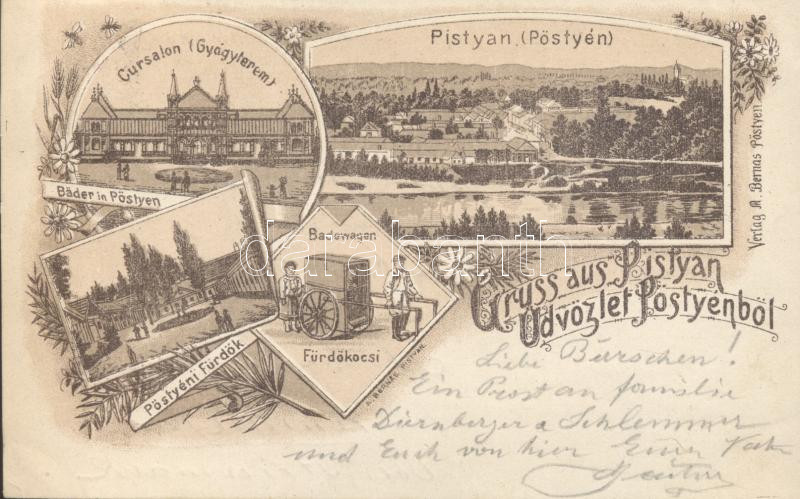 Cursalon (Gyógyterem)
Pistyan. (Pöstyén)
Bäder in Pöstyen
Badewagen
Fürdőkocsi
A. BERNAS PISTYAN.
Pöstyéni Fürdők
Verlag A. Bernas Pöstyen
darabanth
Gruss aus Pistyan
Üdvözlet Pöstyénböl
Liebe Burschen!
Ein Prost an familie
Dürnberger a Schlemmer
und Euch von hier Euer